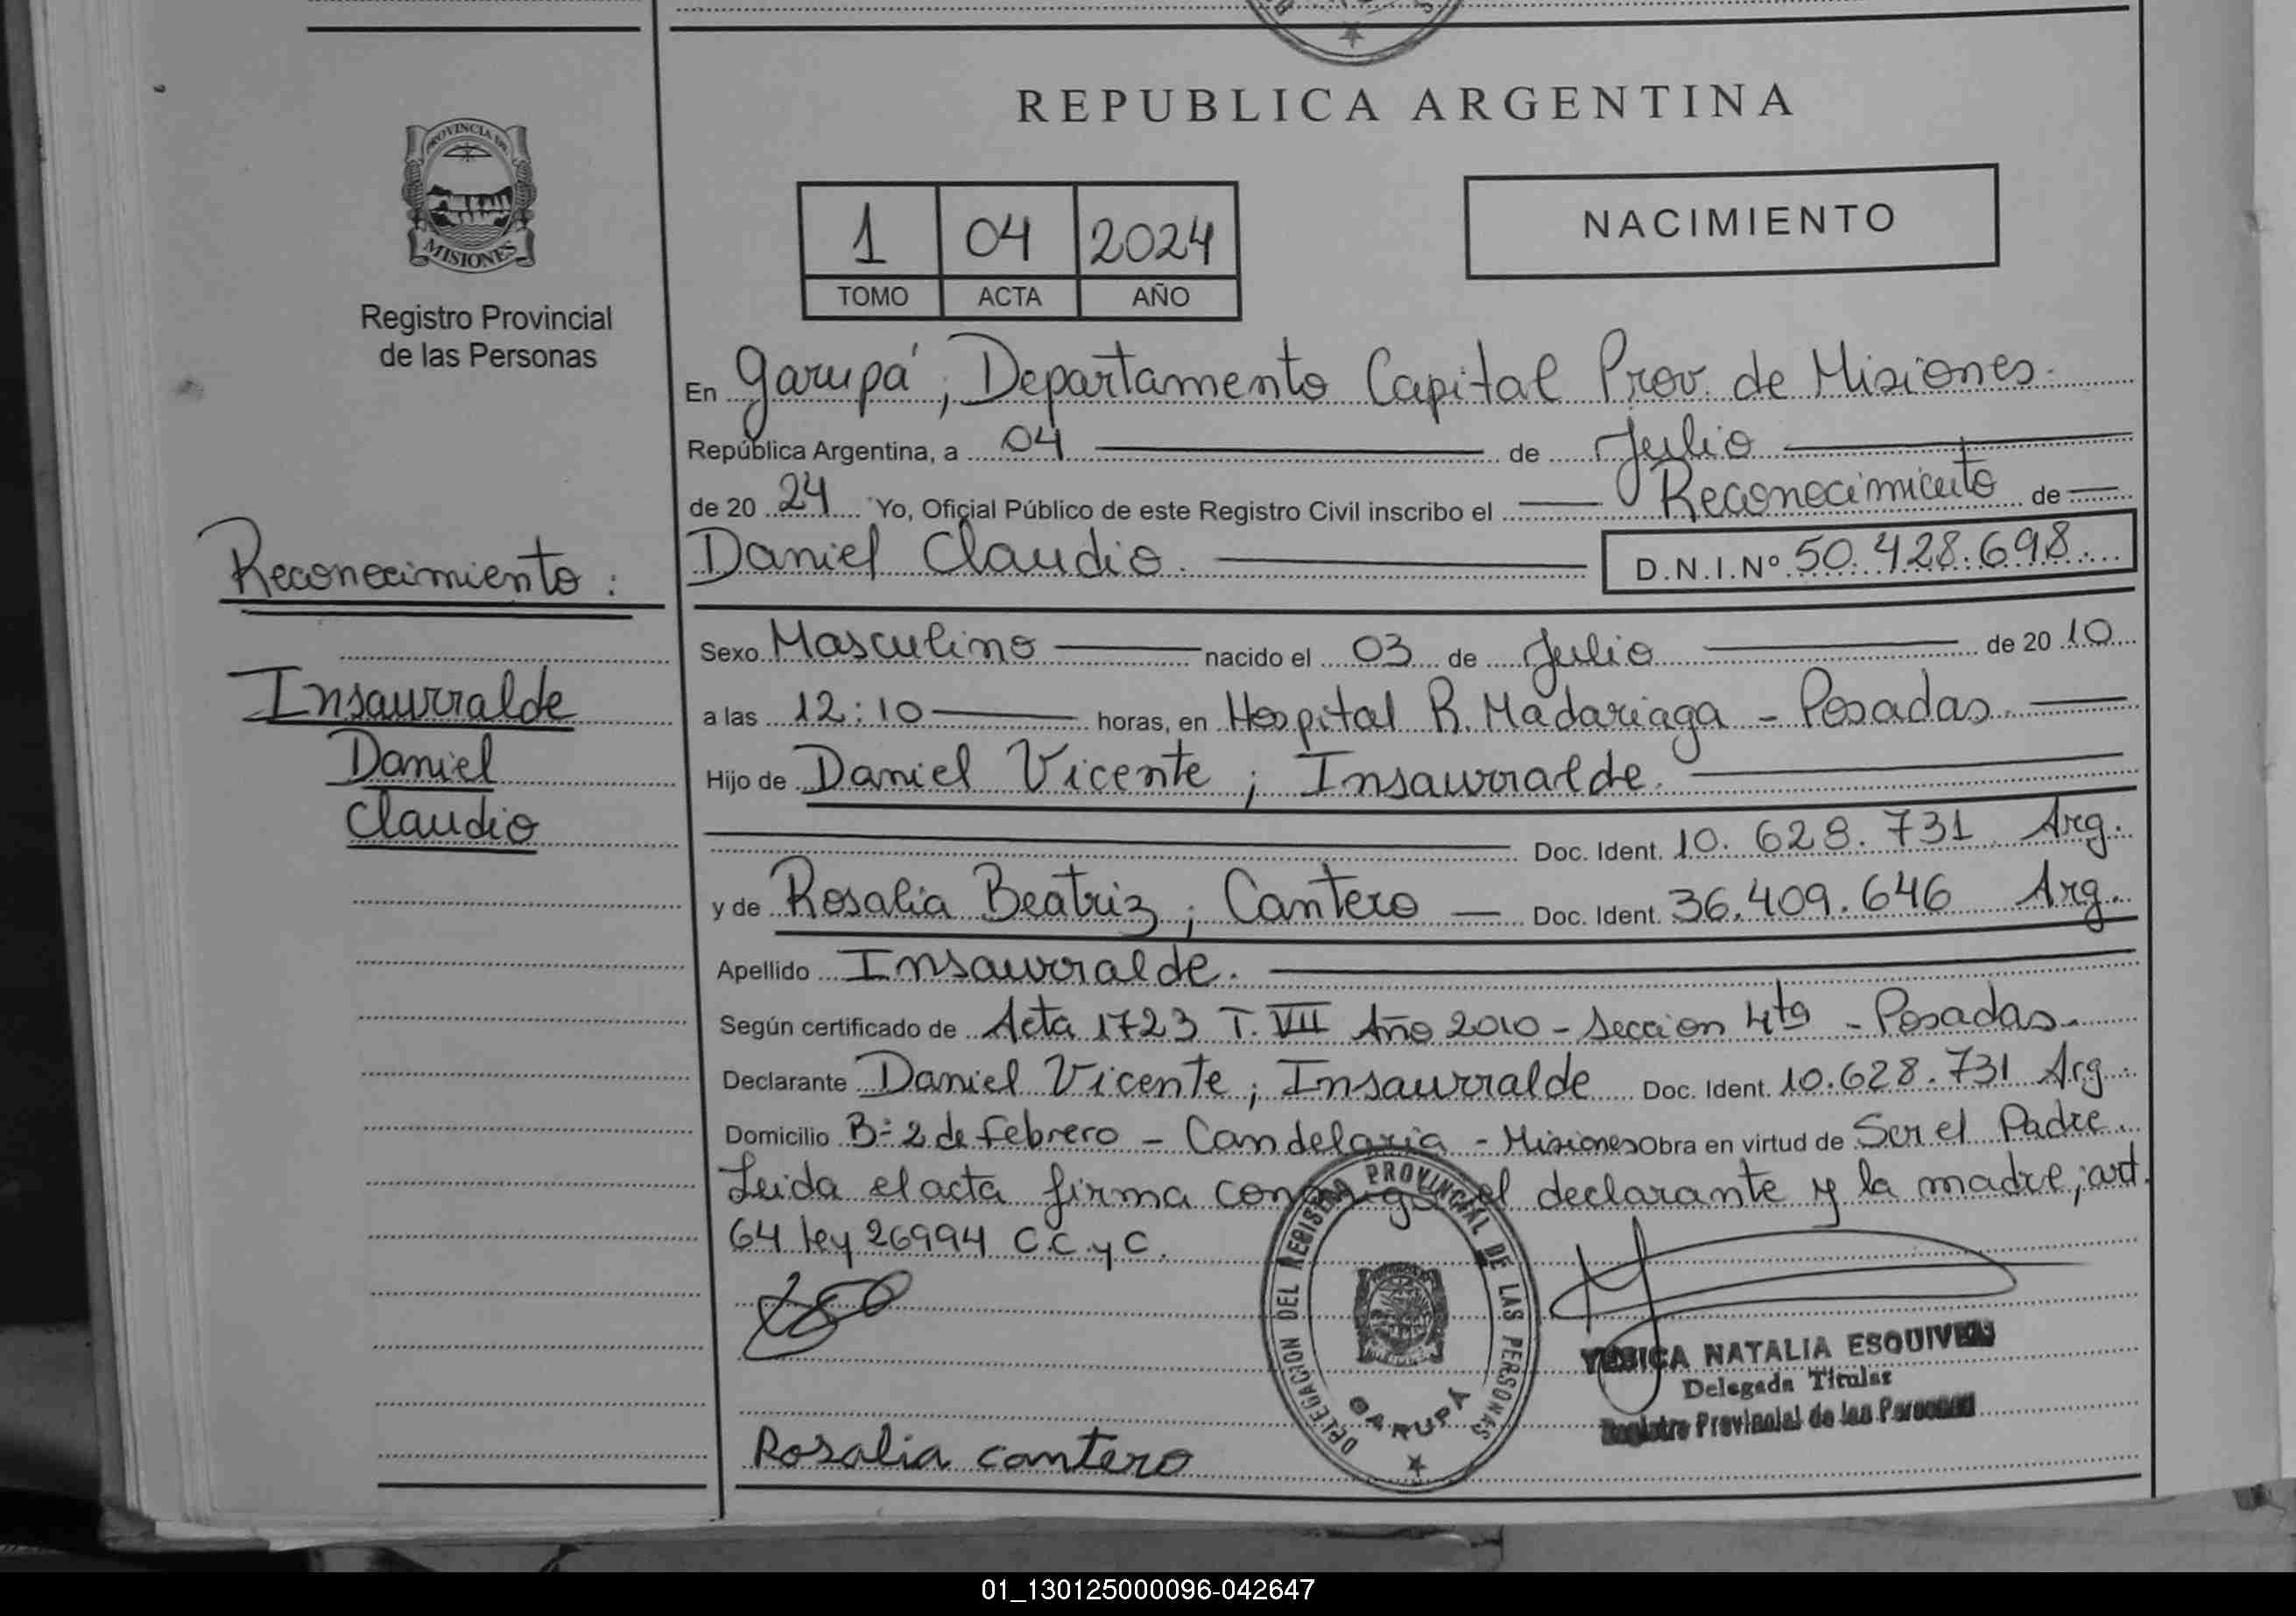 REPUBLICA ARGENTINA
PROVINCIA DE
MISIONES
Registro Provincial
de las Personas
1 04 2024
TOMO ACTA AÑO
NACIMIENTO
En Garupá, Departamento Capital Prov. de Misiones.
República Argentina, a 04 de Julio
de 20 24 Yo, Oficial Público de este Registro Civil inscribo el Reconocimiento de
Daniel Claudio. D.N.I.Nº 50.428.698
Reconocimiento:
Insaurralde
Daniel
Claudio
Sexo Masculino nacido el 03 de Julio de 20 10
a las 12:10 horas, en Hospital R. Madariaga - Posadas.
Hijo de Daniel Vicente ; Insaurralde.
Doc. Ident. 10.628.731 Arg.
y de Rosalia Beatriz ; Cantero Doc. Ident. 36.409.646 Arg.
Apellido Insaurralde.
Según certificado de Acta 1723 T. VII Año 2010 - Seccion 4ta - Posadas.
Declarante Daniel Vicente ; Insaurralde Doc. Ident. 10.628.731 Arg.
Domicilio B- 2 de Febrero - Candelaria - Misiones Obra en virtud de Ser el Padre.
Leida el acta firma conmigo el declarante y la madre; art.
64 ley 26994 C.C.yC.
DELEGACION DEL REGISTRO PROVINCIAL DE LAS PERSONAS
GARUPÁ
YESICA NATALIA ESQUIVEL
Delegada Titular
Registro Provincial de las Personas
Rosalia cantero
01_130125000096-042647